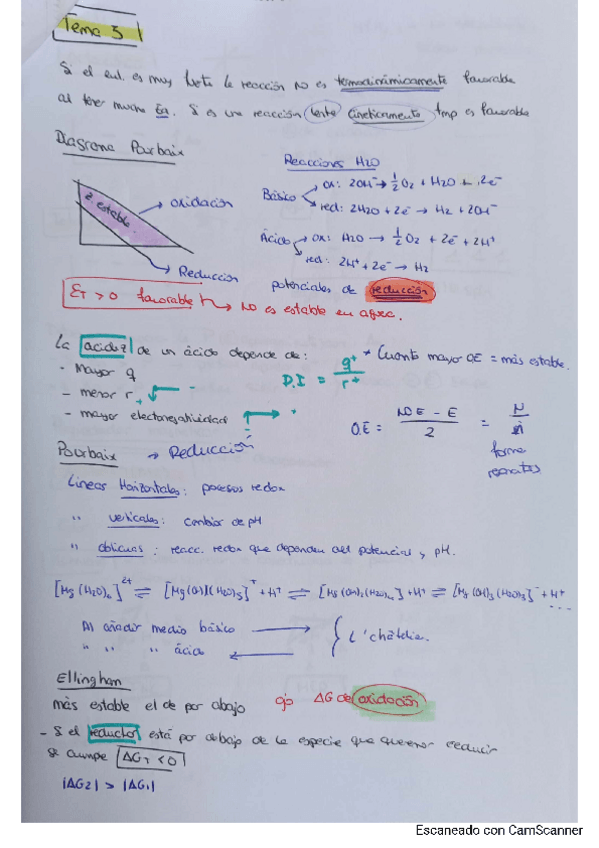 Tema 5
Si el enl. es muy fuerte la reacción no es termodinámicamente favorable
al tener mucha Ea. Si es una reacción lenta cinéticamente tmp es favorable
Diagrama Pourbaix
Reacciones H2O
z. estable
→ oxidación
→ Reducción
Básico
ox: 2OH⁻ → 1/2 O2 + H2O + 2e⁻
red: 2H2O + 2e⁻ → H2 + 2OH⁻
Ácido
ox: H2O → 1/2 O2 + 2e⁻ + 2H⁺
red: 2H⁺ + 2e⁻ → H2
potenciales de reducción
ET > 0 favorable → no es estable en agua.
La acidez de un ácido depende de:
- mayor q
- menor r
- mayor electronegatividad
D.I = q⁺/r⁺
* Cuanto mayor OE = más estable.
OE = (NOE - E)/2 = N/ñ
forma
Pourbaix → Reducción
Líneas Horizontales: procesos redox
" verticales: cambios de pH
" oblicuas: reacc. redox que dependen del potencial y pH.
[Mg(H2O)6]²⁺ ⇌ [Mg(OH)(H2O)5]⁺ + H⁺ ⇌ [Mg(OH)2(H2O)4] + H⁺ ⇌ [Mg(OH)3(H2O)3]⁻ + H⁺ ...
Al añadir medio básico →
" " " ácido ←
L'châtelie.
Ellingham
más estable el de por abajo
ojo ΔG de oxidación
- Si el reductor está por debajo de la especie que queremos reducir
se cumple ΔGT < 0
|ΔG2| > |ΔG1|
Escaneado con CamScanner